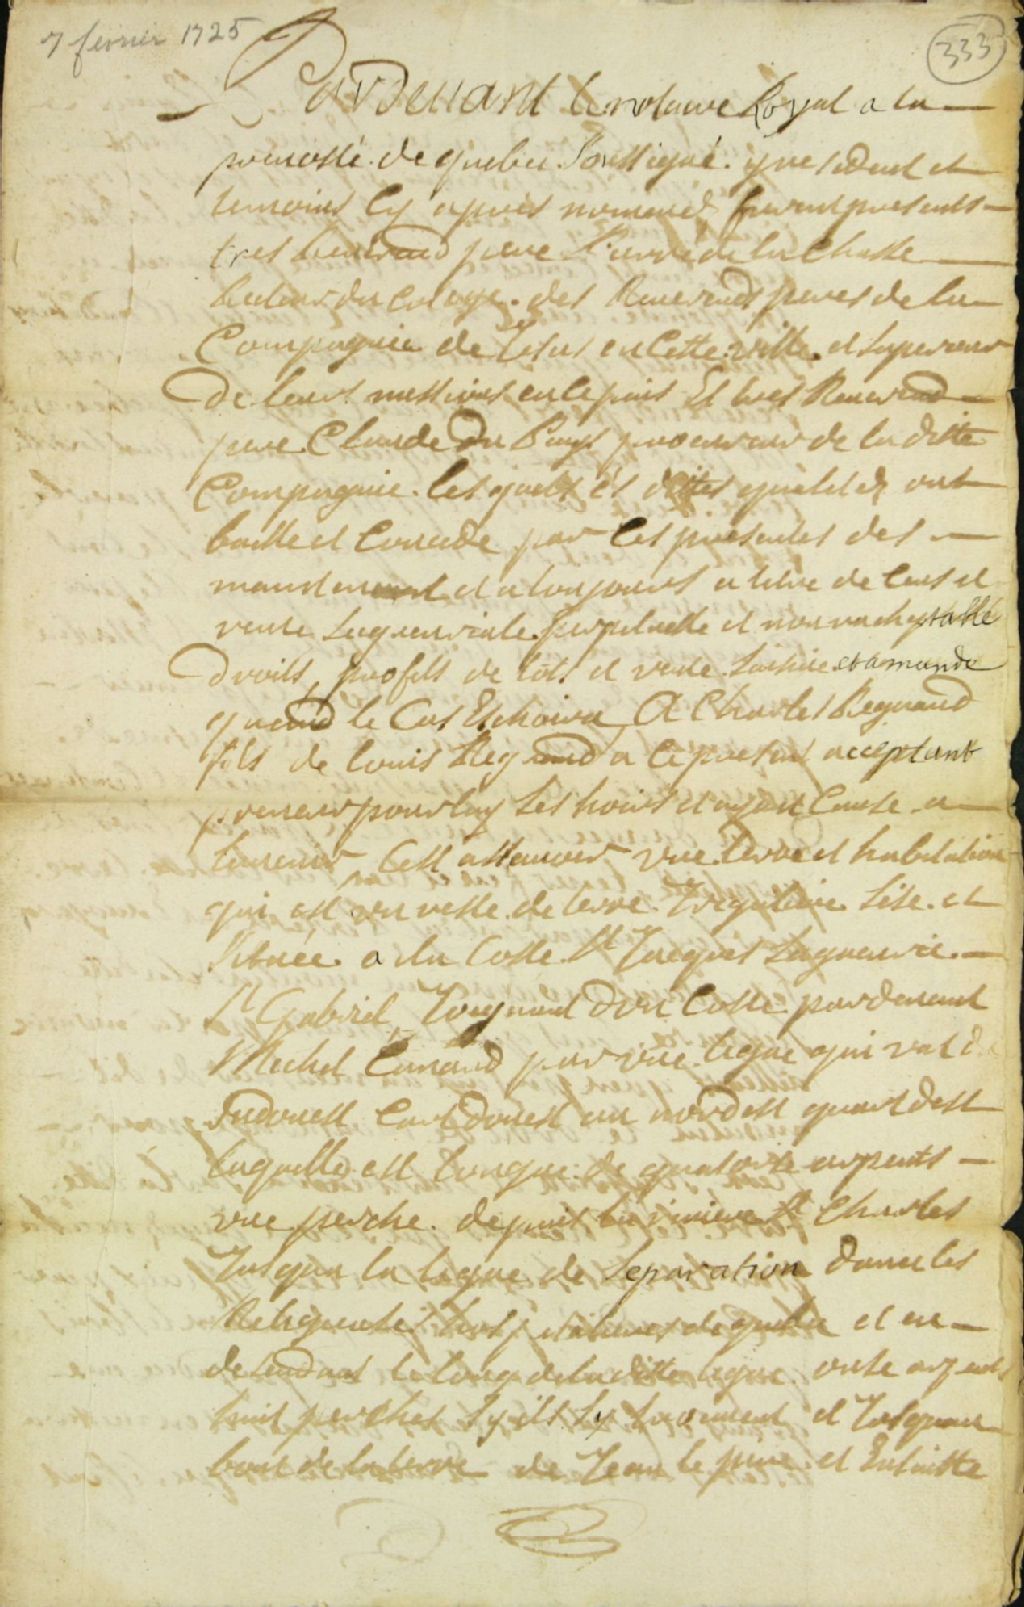 7 fevrier 1725
333
Pardevant le notaire Royal a la
prevosté de quebec soussigné y resident et
temoins cy apres nommés furent presents
tres Reverend pere Pierre de la Chasse
Recteur du College des Reverends peres de la
Compagnie de Jesus en cette ville et superieur
de leurs missions en ce païs Et tres Reverend
pere Claude Du Puys procureur de la ditte
Compagnie lesquels és dittes qualités ont
baillé et concedé par ces presentes des
maintenant et a toujours a titre de cens et
rente seigneuriale perpetuelle et non racheptable
droits, profits de lots et vente saisine et amande
quand le cas Eschoira A Charles Regnaud
fils de Louis Regnaud a ce present acceptant
preneur pour luy ses hoirs et ayant cause a
l'avenir, C'est assavoir une terre et habitation
qui est un reste de terre Irguliere sise et
situeé a la Coste St Jacques seigneurie
St Gabriel, Joignant d'un Costé pardevant
Michel par une ligne qui vat de
Sudouest cart douest au nordest quart dest
laquelle est longue de quatorze arpents
une perche depuis la riviere St Charles
Jusqua la ligne de Separation d'avec les
Religieuses hospitalieres de quebec et en
descendant le long de la ditte ligne onze arpents
huit perches sy ils sy trouvent et Jusquau
bout de la terre de Jean le pire et Ensuitte